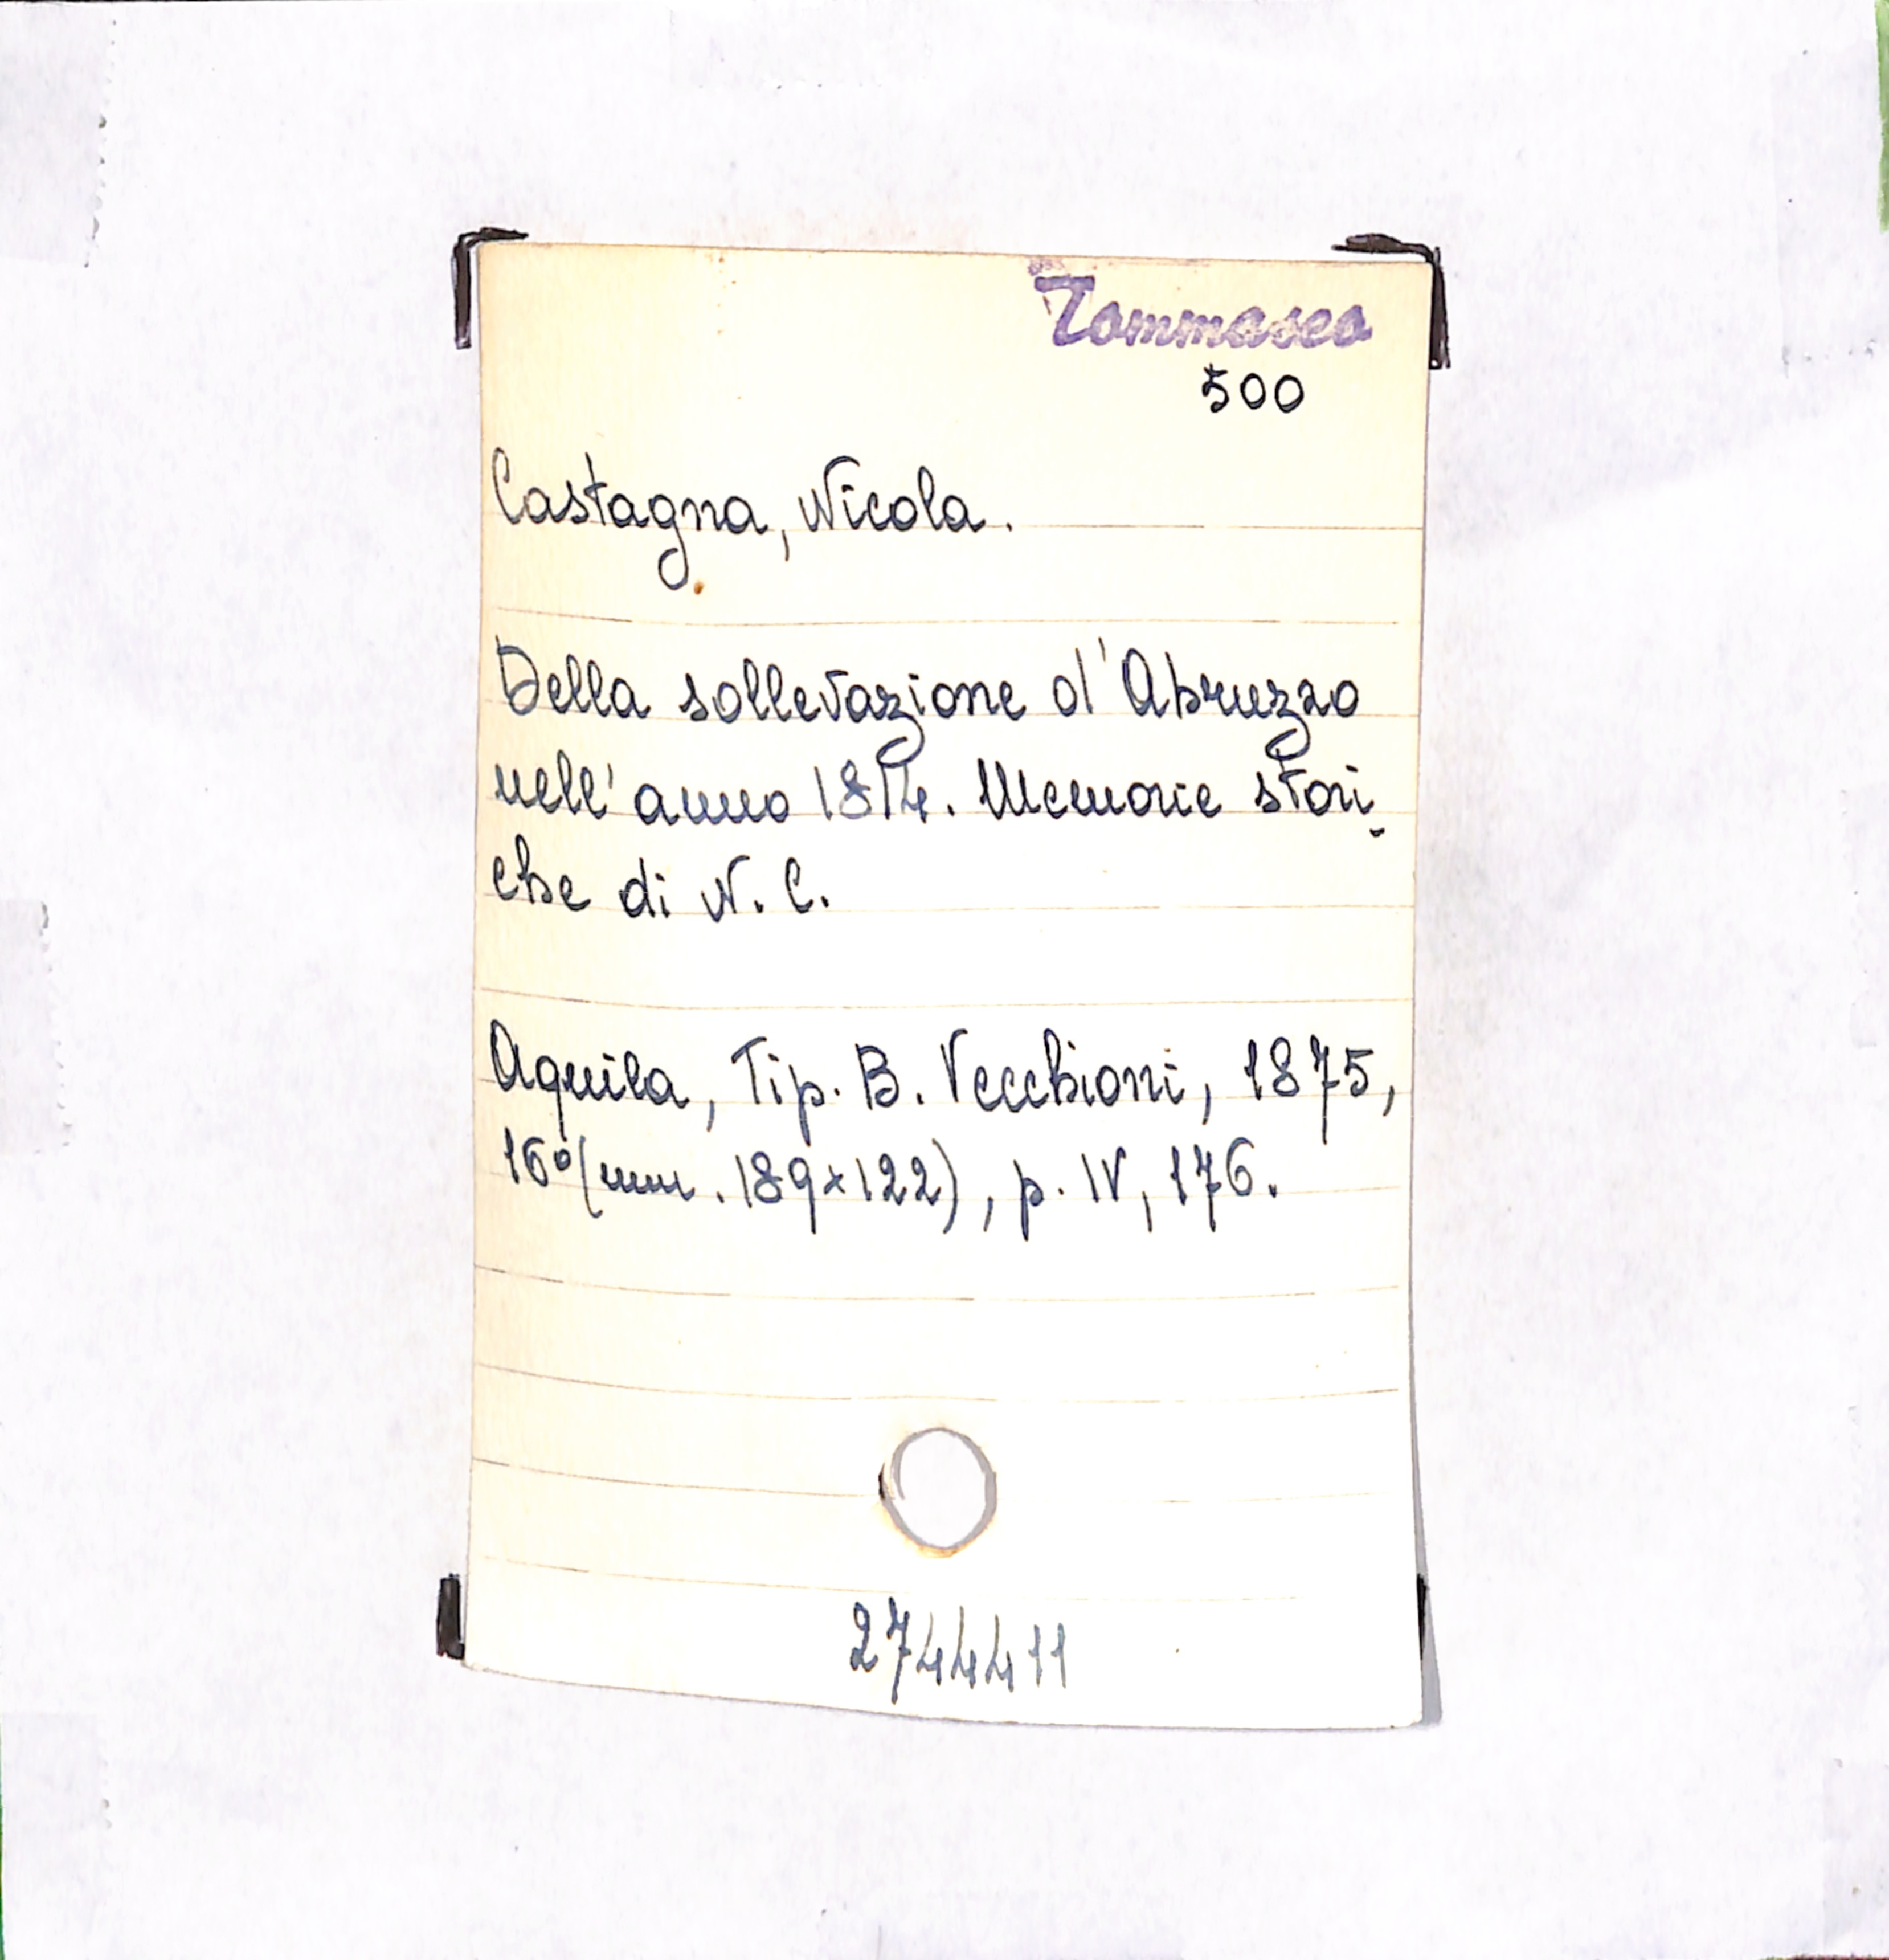 Tommaseo
500
Castagna, Nicola.
Della sollevazione d'Abruzzo
nell'anno 1814. Memorie stori-
che di N. C.
Aquila, Tip. B. Vecchioni, 1875,
16° (mm. 189×122), p. IV, 176.
2744411